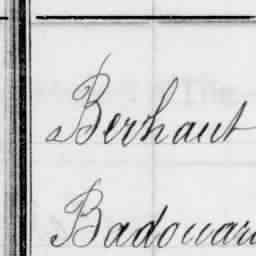 Berhaut
Badouar